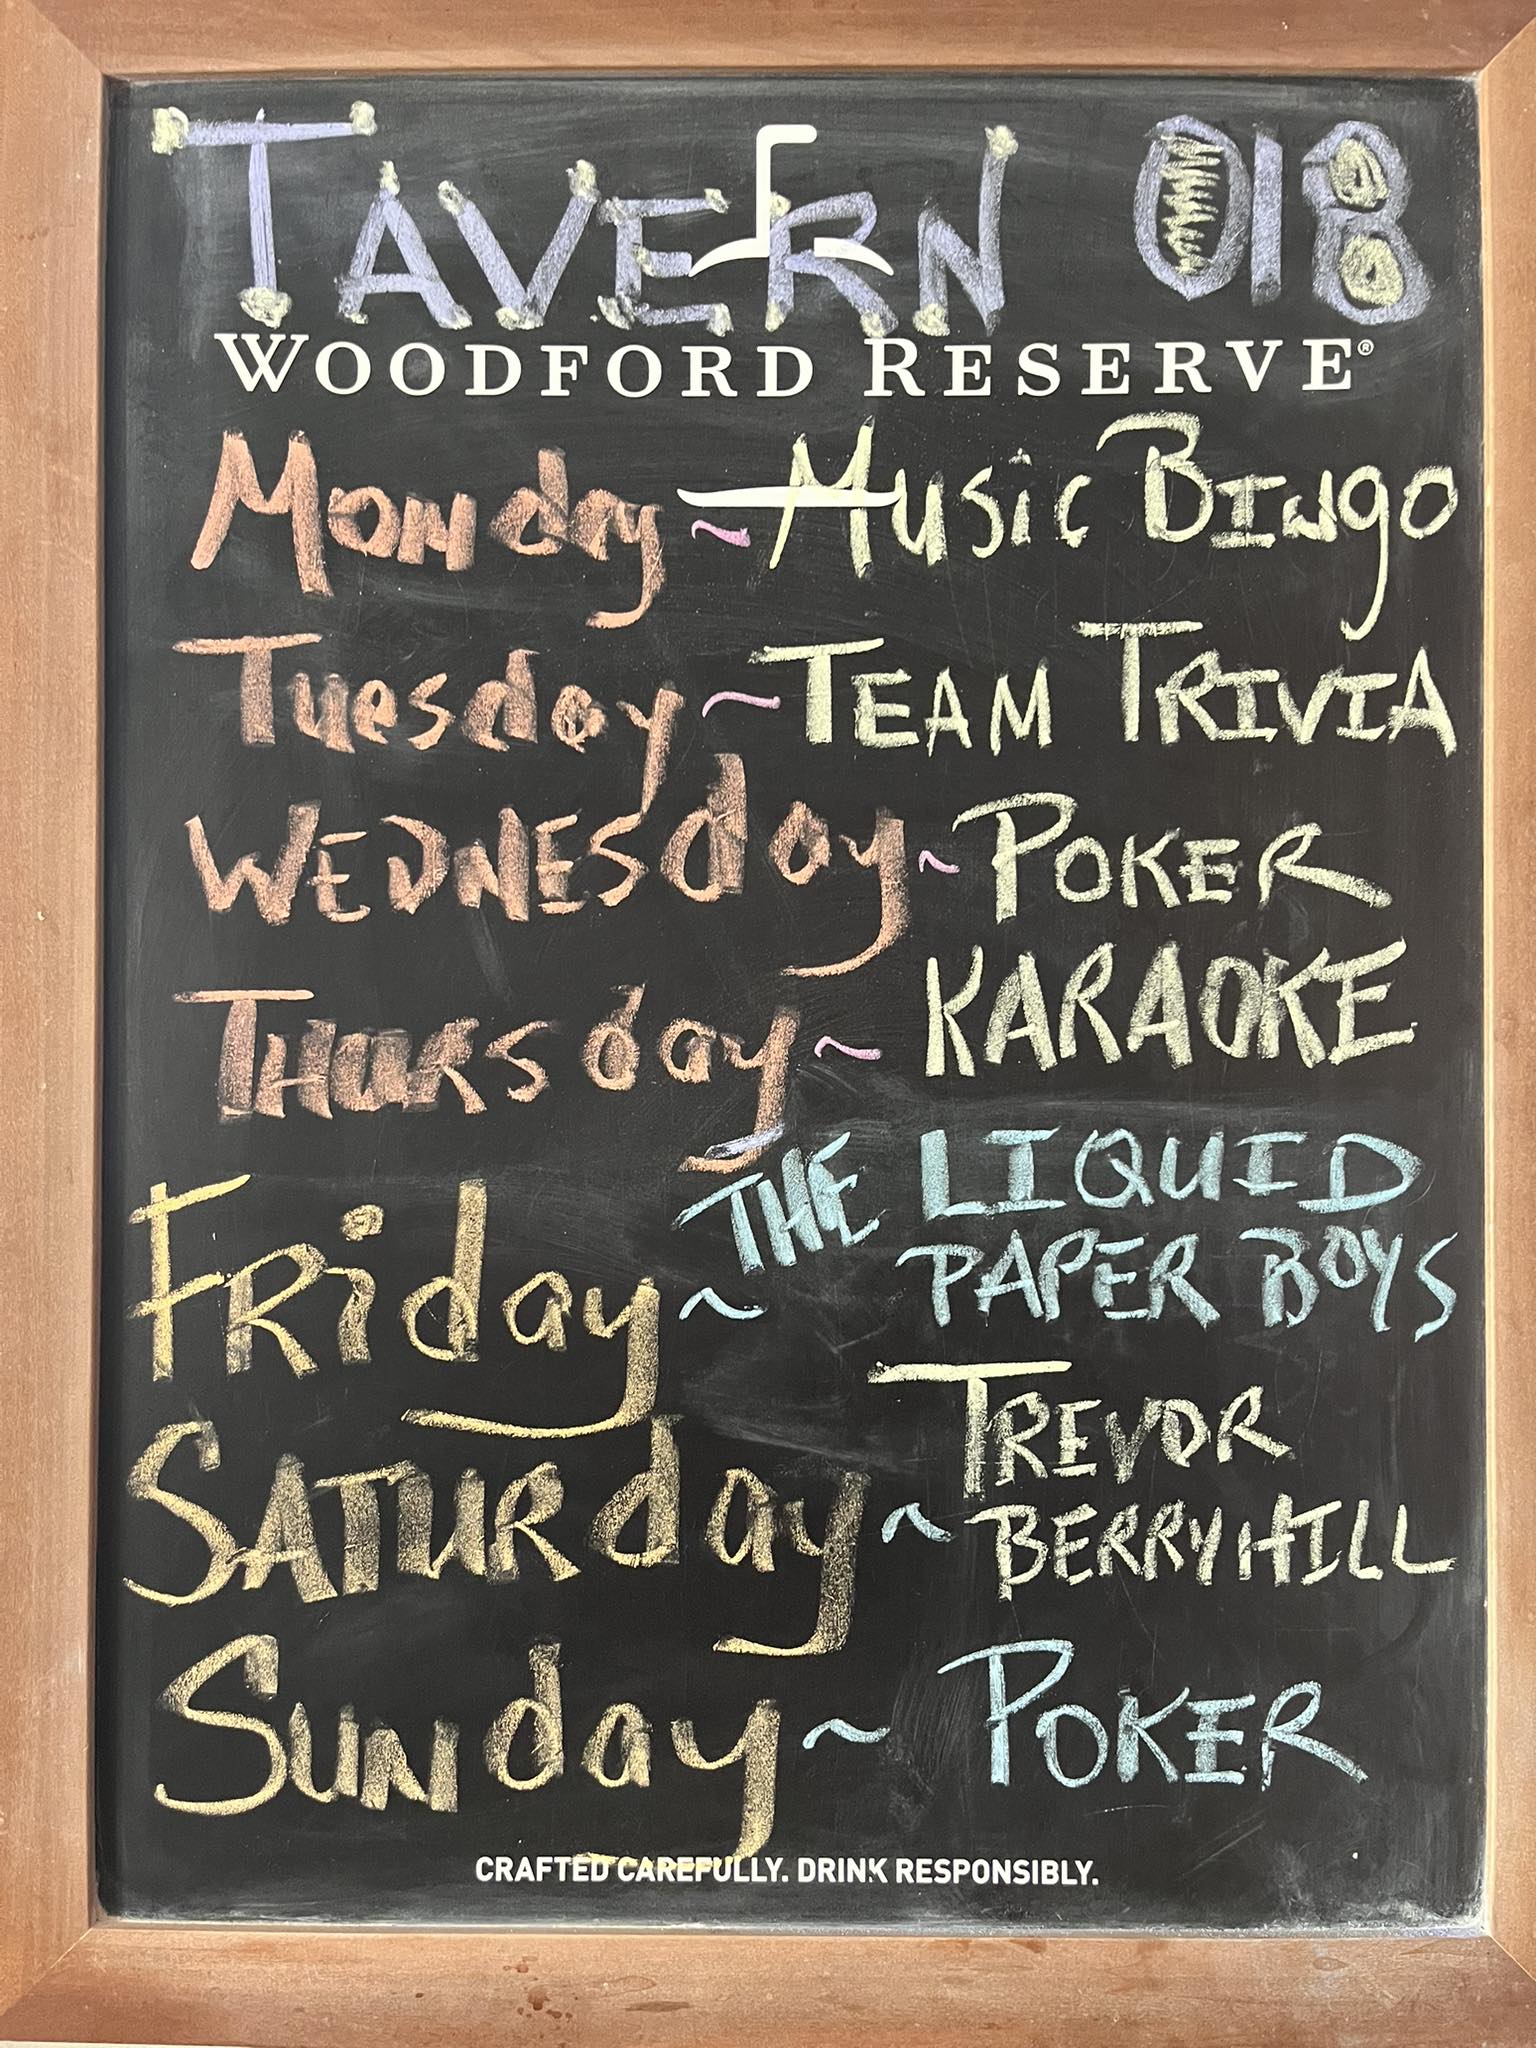 TAVERN 018
WOODFORD RESERVE®
Monday ~ Music Bingo
Tuesday ~ TEAM TRIVIA
WEDNESday ~ POKER
THURSday ~ KARAOKE
FRiday ~ THE LIQUID
PAPER BOYS
SATURday ~ TREVOR
BERRYHILL
SuNday ~ POKER
CRAFTED CAREFULLY. DRINK RESPONSIBLY.